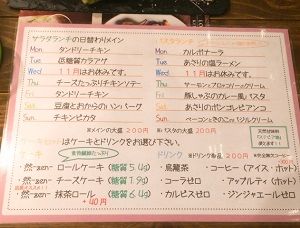 サラダランチの日替わりメイン
Mon タンドリーチキン
Tue 低糖質カラアゲ
Wed 11月はお休みです。
Thu チーズたっぷりチキンソテー
Fri タンドリーチキン
Sat 豆腐とおからのハンバーグ
Sun チキンピカタ
※メインの大盛 200円
パスタランチ
Mon カルボナーラ
Tue あさりの塩ラーメン
Wed 11月はお休みです。
Thu サーモンとブロッコリークリーム
Fri 豚しゃぶのカレー風パスタ
Sat あさりのボンゴレビアンコ
Sun ベーコンときのこの クリーム
※パスタの大盛 200円
はケーキとドリンクをお選び下さい。
食物繊維たっぷり
・然-zen- ロールケーキ (糖質5.4g)
・然-zen- チーズケーキ (糖質1.9g)
・然-zen- 抹茶ロール (糖質6.4g)
+40円
ドリンク ※ドリンク単品 200円
・烏龍茶 ・コーヒー (アイス・ホット)
・コーラゼロ ・アップルティ (ホット)
・カルピスゼロ ・ジンジャエールゼロ